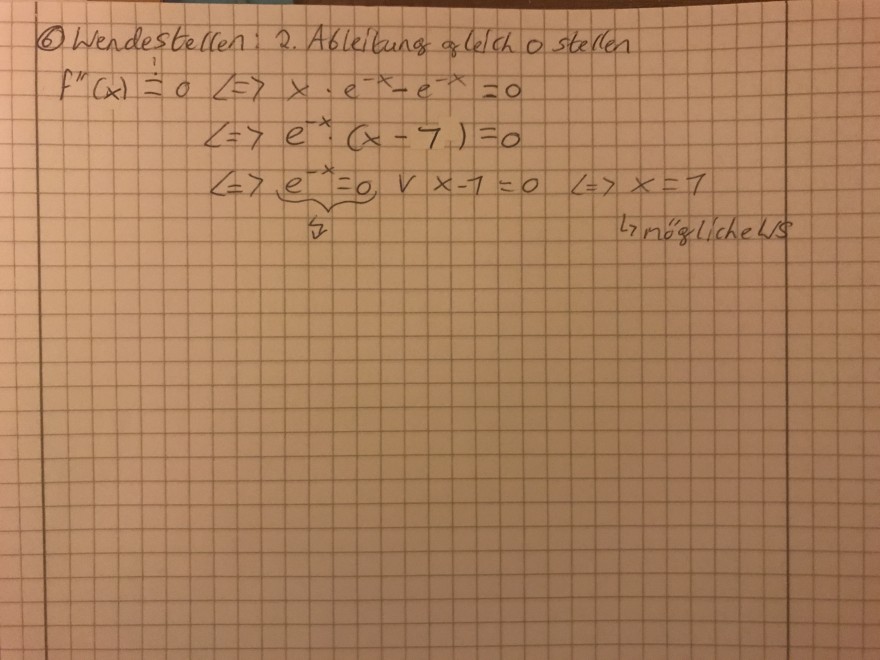 ⑥ Wendestellen: 2. Ableitung gleich 0 stellen
f''(x) != 0 <=> x · e^-x - e^-x = 0
<=> e^-x · (x - 1) = 0
<=> e^-x = 0 ∨ x - 1 = 0 <=> x = 1
↯ ↳ mögliche WS